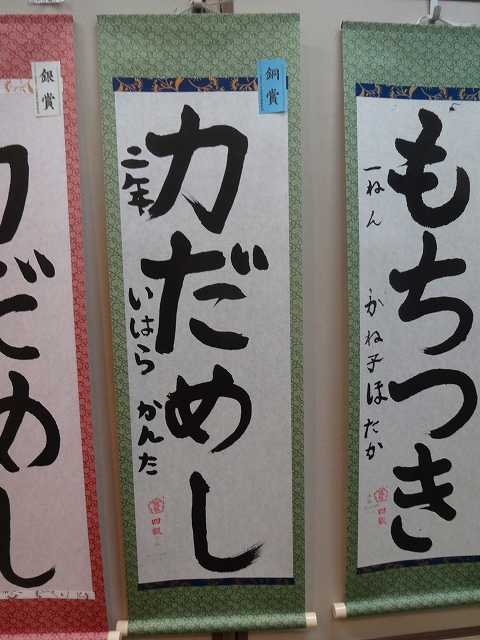 もちつき
一ねん かね子 ほだか
四級
銅賞
力だめし
二年 いはら かんた
四級
銀賞
力だめし